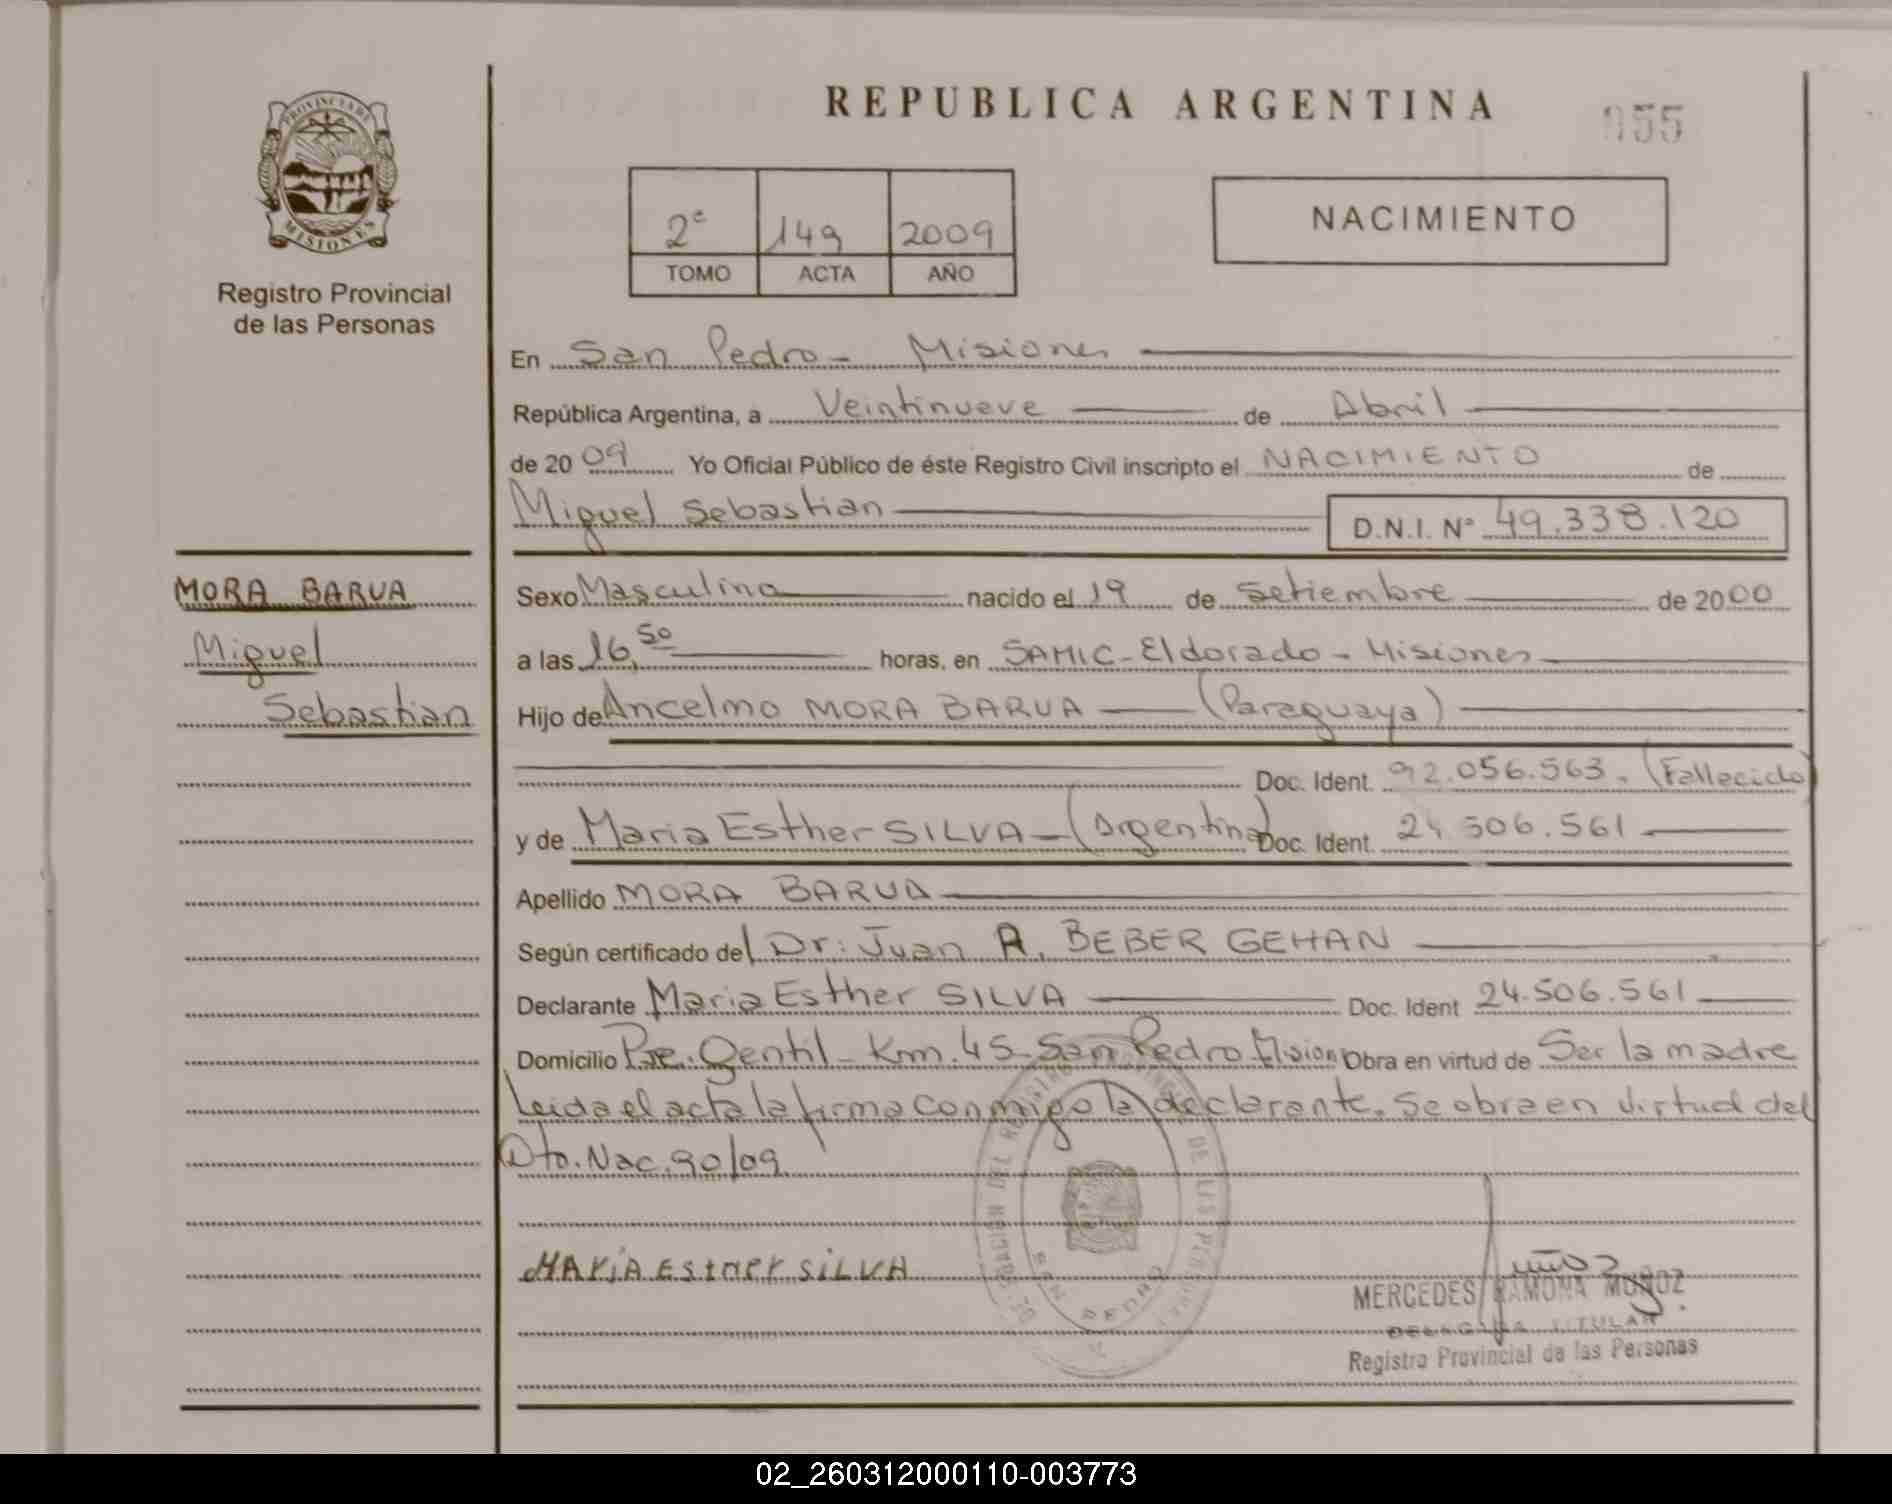 PROVINCIA DE
MISIONES
Registro Provincial
de las Personas
REPUBLICA ARGENTINA
055
2º 149 2009
TOMO ACTA AÑO
NACIMIENTO
En San Pedro - Misiones
República Argentina, a Veintinueve de Abril
de 2009 Yo Oficial Público de éste Registro Civil inscripto el NACIMIENTO de
Miguel Sebastian D.N.I. Nº 49.338.120
MORA BARUA
Miguel
Sebastian
Sexo Masculino nacido el 19 de Setiembre de 2000
a las 16,50 horas, en SAMIC - Eldorado - Misiones
Hijo de Ancelmo MORA BARUA (Paraguaya)
Doc. Ident. 92.056.563. (Fallecido)
y de Maria Esther SILVA - (Argentina) Doc. Ident. 24.506.561
Apellido MORA BARUA
Según certificado del Dr: Juan R. BEBER GEHAN
Declarante Maria Esther SILVA Doc. Ident 24.506.561
Domicilio Pje. Gentil - Km. 45 - San Pedro Obra en virtud de Ser la madre
Leida el acta la firma conmigo la declarante. Se obra en virtud del
Dto. Nac. 90/09
MARIA EStHER SiLVA
SAN PEDRO
MERCEDES RAMONA MUÑOZ
DELEGADA TITULAR
Registro Provincial de las Personas
02_260312000110-003773